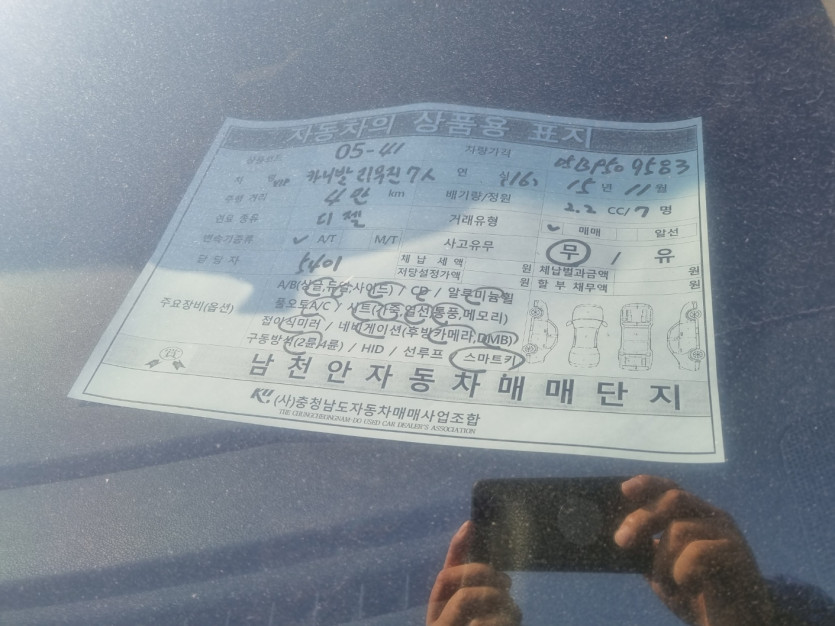 자동차의 상품용 표지
상품코드 05-41 차량가격
차 명 VIP 카니발 리무진 7人 연 식 (16) 15년 11월
주행 거리 4만 km 배기량/정원 2.2 CC/ 7 명
연료 종류 디젤 거래유형 ✓ 매매 알선
변속기종류 ✓ A/T M/T 사고유무 무 / 유
담 당 자 5401 체 납 세 액 원 체납벌과금액 원
저당설정가액 원 할 부 채무액 원
주요장비(옵션) A/B(싱글,듀얼,사이드) / CD / 알로미늄휠
풀오토A/C / 시트(가죽,열선,통풍,메모리)
접이식미러 / 네비게이션(후방카메라,DMB)
구동방식(2륜,4륜) / HID / 선루프 스마트키
남천안자동차매매단지
(사)충청남도자동차매매사업조합
THE CHUNGCHEONGNAM-DO USED CAR DEALER'S ASSOCIATION